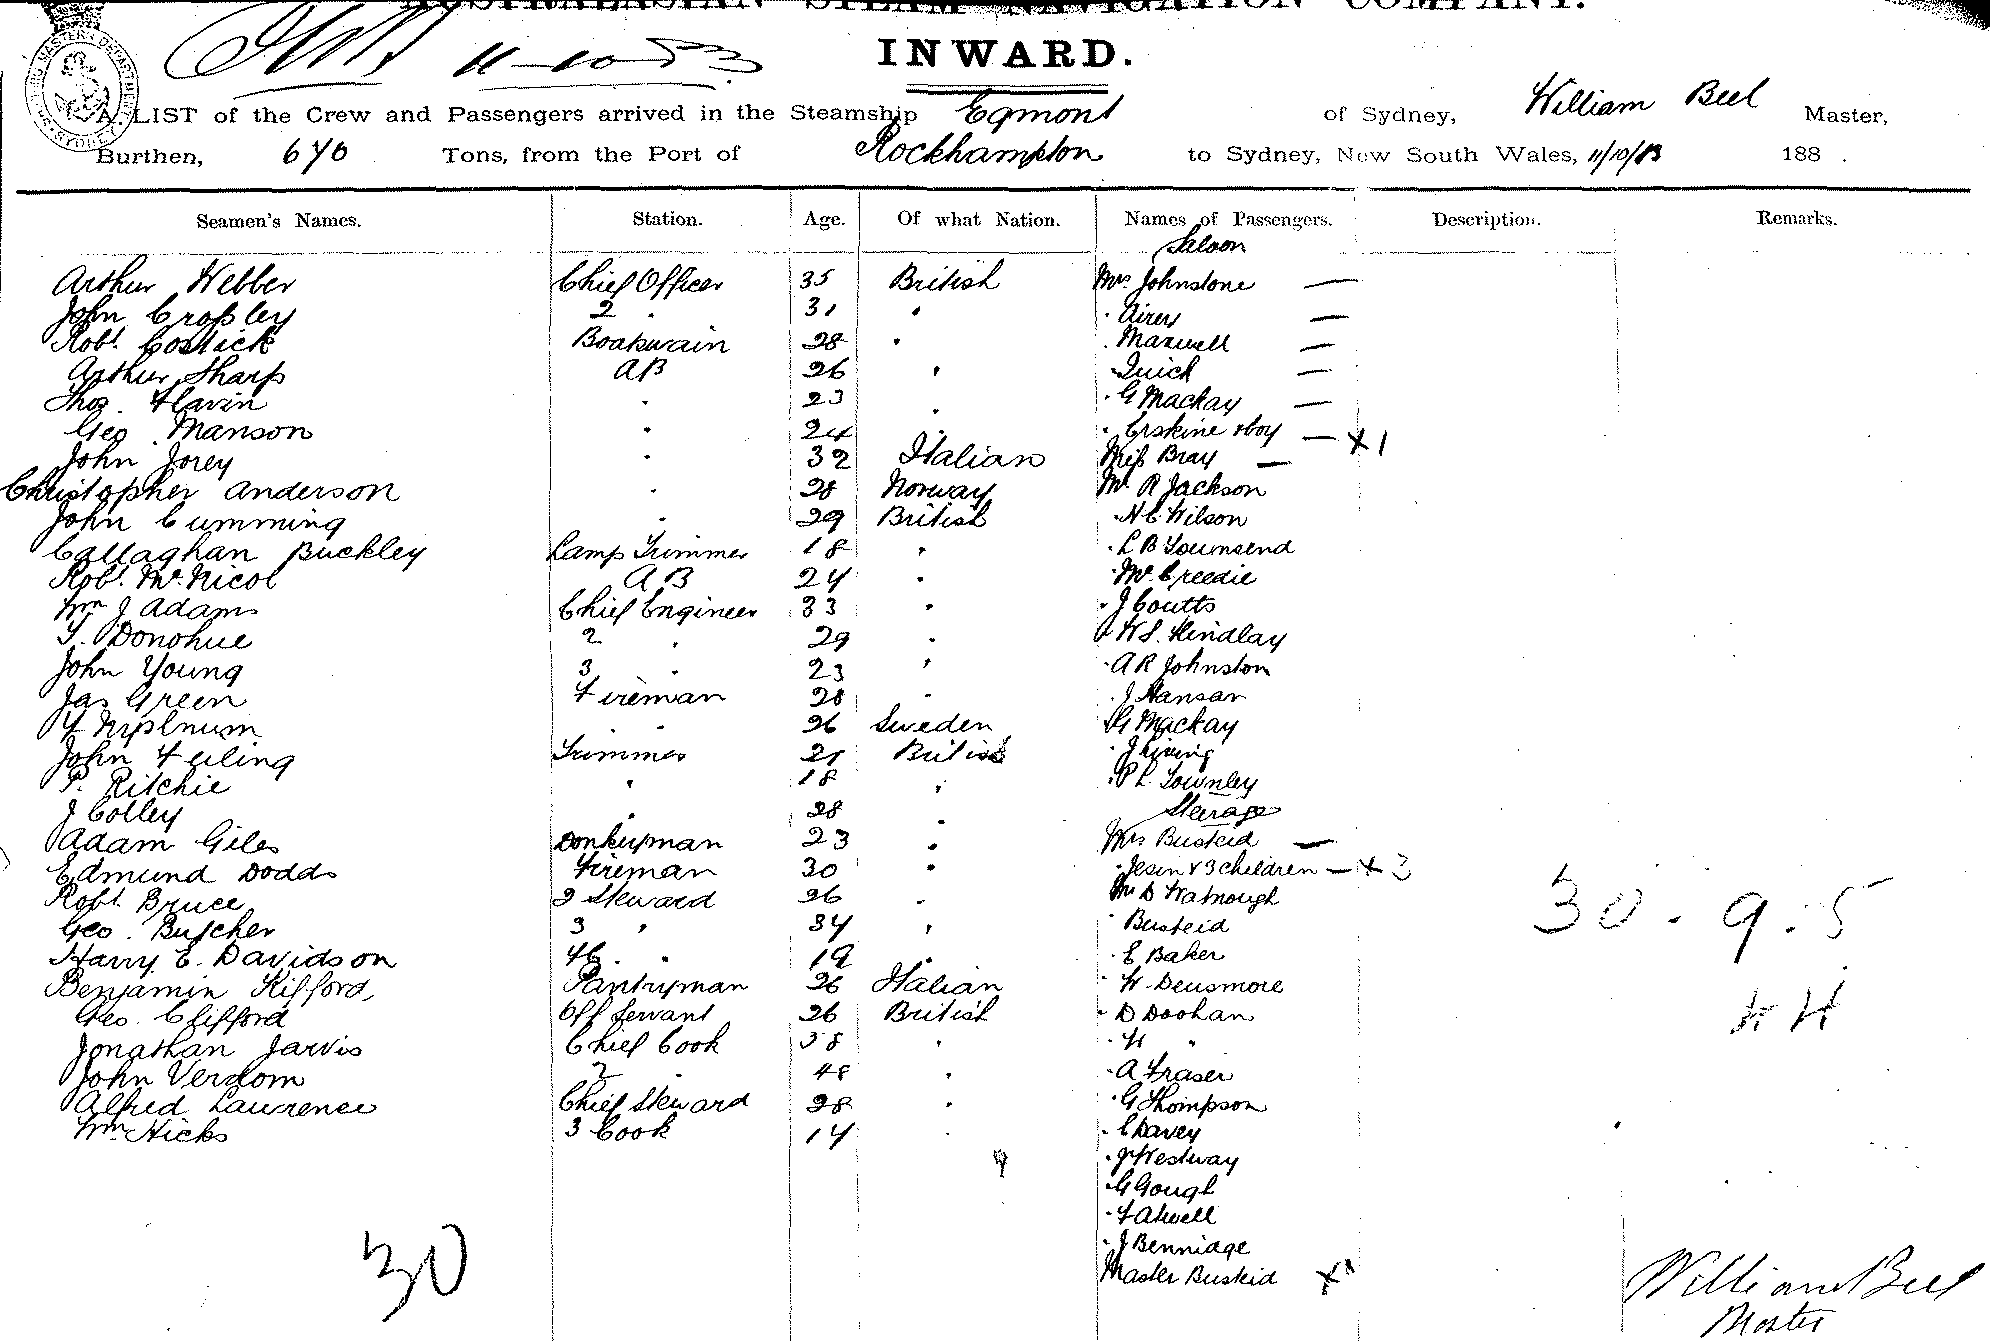 AUSTRALASIAN STEAM NAVIGATION COMPANY.
11-10-83
INWARD.
A LIST of the Crew and Passengers arrived in the Steamship Egmont of Sydney, William Beel Master,
Burthen, 670 Tons, from the Port of Rockhampton to Sydney, New South Wales, 11/10/83 188 .
Seamen's Names. Station. Age. Of what Nation. Names of Passengers. Description. Remarks.
Saloon
Arthur Webber Chief Officer 35 British Mrs Johnstone —
John Cropley 2 " 31 " " Airey —
Robt. Costick Boatswain 28 " " Maxwell —
Arthur Sharp AB 26 " " Quick —
Thos. Flavin " 23 " " G Mackay —
Geo. Manson " 24 " " Erskine & boy — x 1
John Jorey " 32 Italian Miss Bray —
Christopher Anderson " 28 Norway Mr R Jackson
John Cumming " 29 British " H C Wilson
Callaghan Buckley Lamp Trimmer 18 " " L B Townsend
Robt. McNicol AB 24 " " McCreedie
Wm J Adams Chief Engineer 33 " " J Coutts
T. Donohue 2 " 29 " " W S. Hindlay
John Young 3 " 23 " " A R Johnston
Jas Green Fireman 28 " " J Hansan
" 26 Sweden " G Mackay
John Feiling Trimmer 21 British " J
P. Ritchie " 18 " " P L Townley
J Colley " 28 " Steerage
Adam Giles Donkeyman 23 " Mrs Busteid —
Edmund Dodds Fireman 30 " " Jesin & 3 children — x 3
Robt. Bruce 2 Steward 26 " Mr D Watnough
Geo. Butcher 3 " 34 " " Busteid
Harry E. Davidson 4th " 19 " " E Baker
Benjamin Kifford, Pantryman 26 Italian " W Densmore
Geo. Clifford Off Servant 26 British " D Doohan
Jonathan Jarvis Chief Cook 38 " " W "
John Verdom 2 " 48 " " A Fraser
Alfred Lawrence Chief Steward 28 " " G Thompson
Wm Hicks 3 Cook 14 " " E Davey
" J Westway
" G Gough
" F Atwell
" J Bennidge
Master Busteid x 1
30
30 . 9 . 5
William Beel
Master